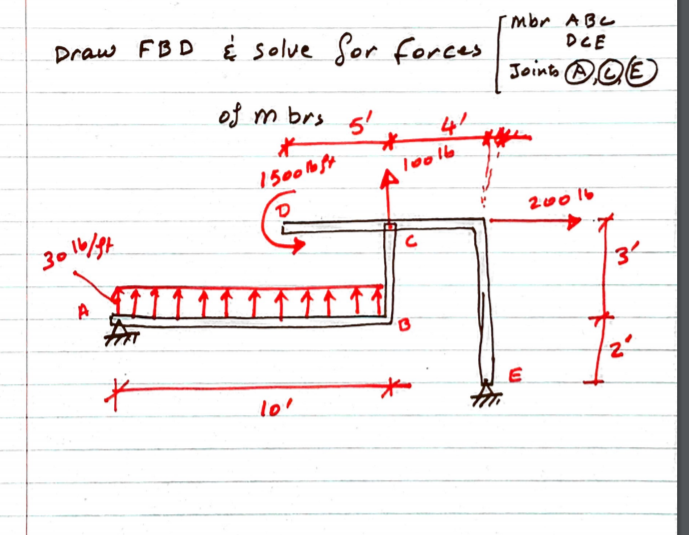 Draw FBD & solve for forces
of mbrs
mbr ABC
DCE
Joints A, C, E
5'
4'
1500 lb ft
100 lb
D
200 lb
C
30 lb/ft
3'
A
B
2'
E
10'